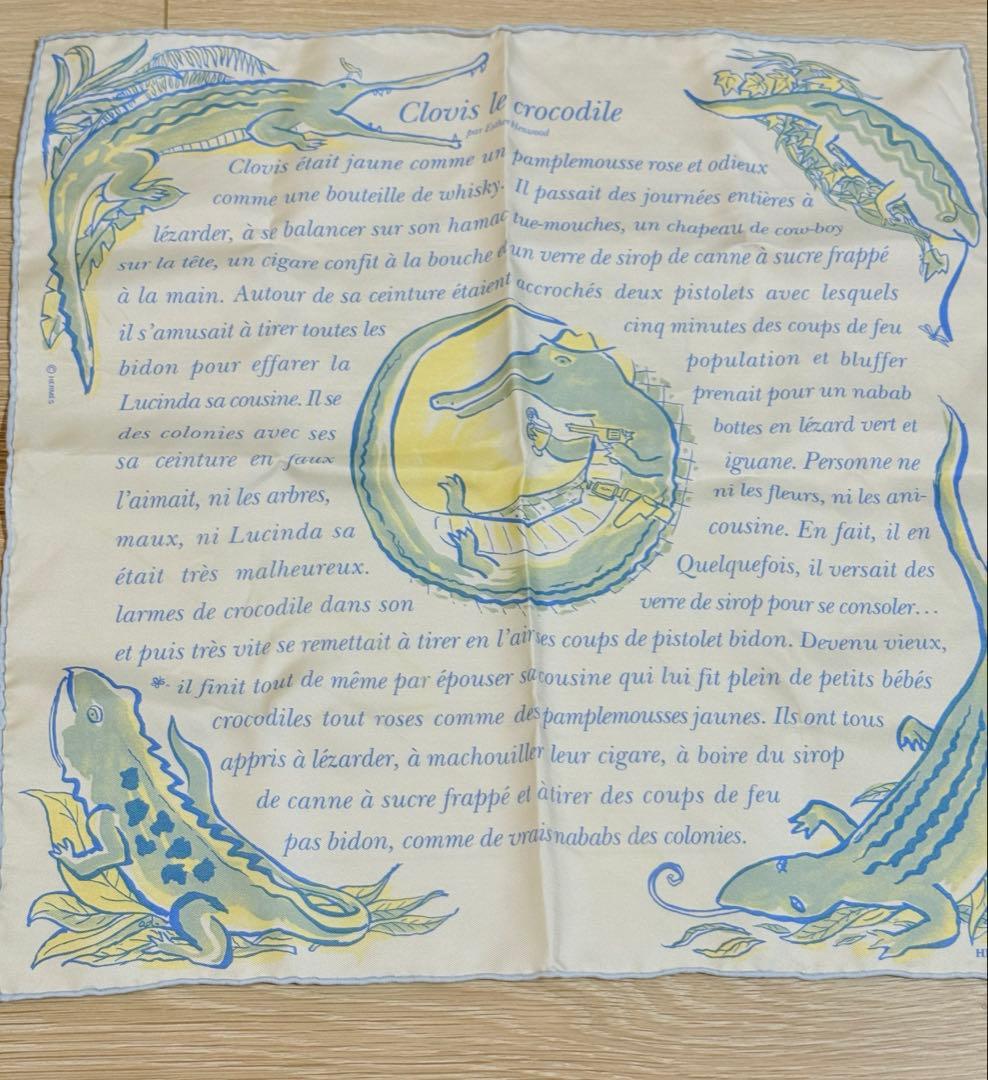 Clovis le crocodile
par Esther Henwood
Clovis était jaune comme un pamplemousse rose et odieux
comme une bouteille de whisky. Il passait des journées entières à
lézarder, à se balancer sur son hamac tue-mouches, un chapeau de cow-boy
sur la tête, un cigare confit à la bouche et un verre de sirop de canne à sucre frappé
à la main. Autour de sa ceinture étaient accrochés deux pistolets avec lesquels
il s'amusait à tirer toutes les cinq minutes des coups de feu
bidon pour effarer la population et bluffer
Lucinda sa cousine. Il se prenait pour un nabab
des colonies avec ses bottes en lézard vert et
sa ceinture en faux iguane. Personne ne
l'aimait, ni les arbres, ni les fleurs, ni les ani-
maux, ni Lucinda sa cousine. En fait, il en
était très malheureux. Quelquefois, il versait des
larmes de crocodile dans son verre de sirop pour se consoler...
et puis très vite se remettait à tirer en l'air ses coups de pistolet bidon. Devenu vieux,
il finit tout de même par épouser sa cousine qui lui fit plein de petits bébés
crocodiles tout roses comme des pamplemousses jaunes. Ils ont tous
appris à lézarder, à machouiller leur cigare, à boire du sirop
de canne à sucre frappé et à tirer des coups de feu
pas bidon, comme de vrais nababs des colonies.
© HERMES